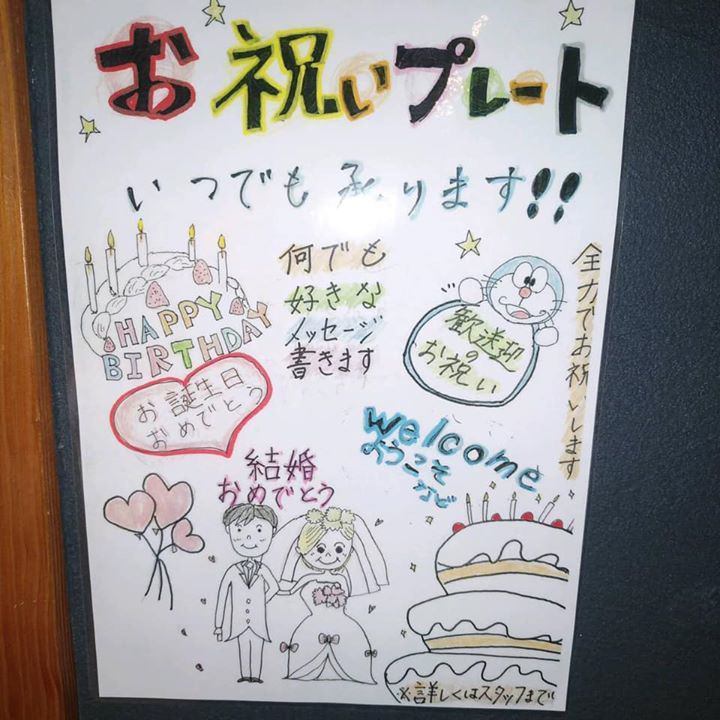 お祝いプレート
いつでも承ります!!
何でも
好きな
メッセージ
書きます
HAPPY
BIRTHDAY
お誕生日
おめでとう
歓送迎
の
お祝い
全力でお祝いします
welcome
ようこそ
など
結婚
おめでとう
※詳しくはスタッフまで